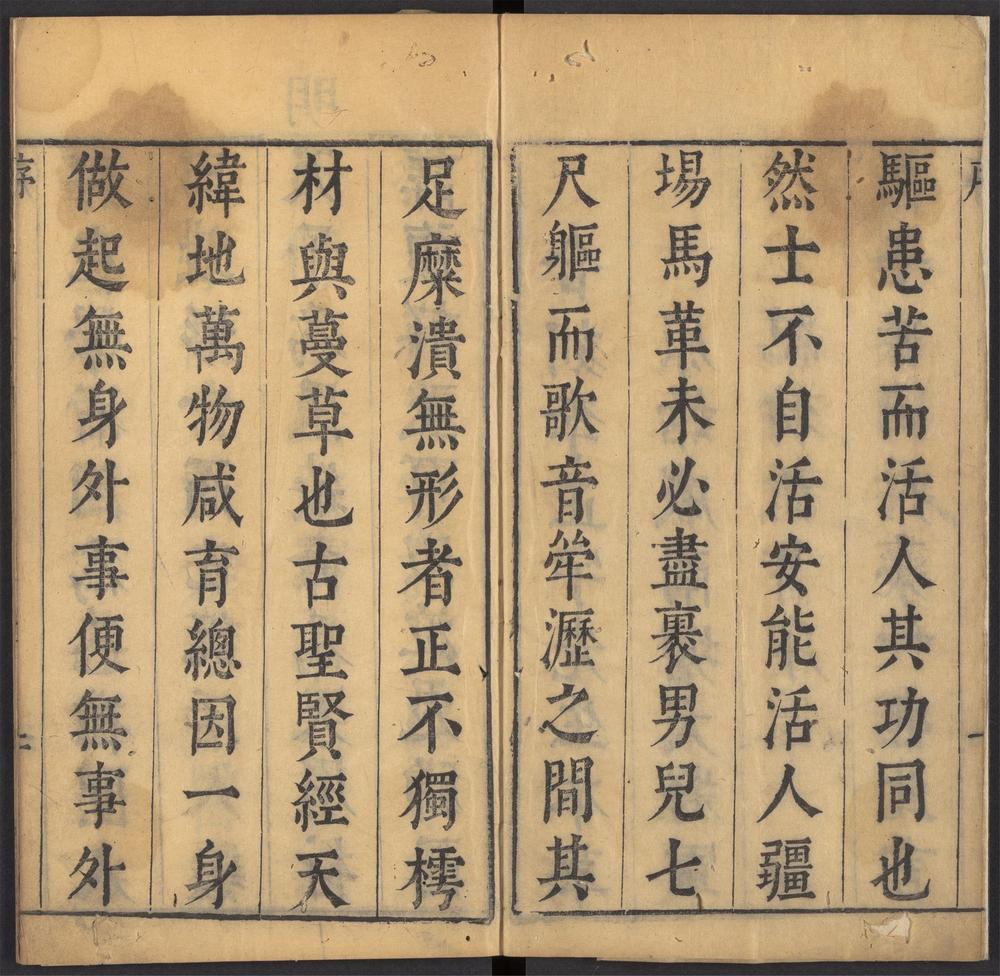 驅患苦而活人其功同也
然士不自活安能活人疆
場馬革未必盡裹男兒七
尺軀而歌音筰瀝之間其
足糜潰無形者正不獨樗
材與蔓草也古聖賢經天
緯地萬物咸育總因一身
做起無身外事便無事外
序